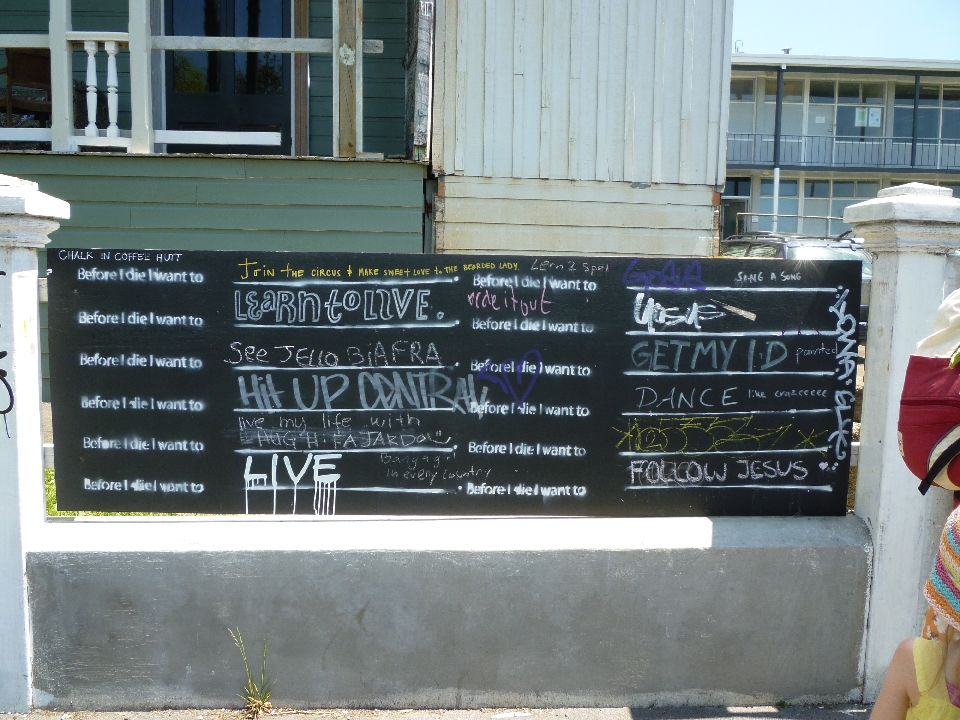 CHALK IN COFFEE HUTT
Before I die I want to JOIN THE CIRCUS & MAKE SWEET LOVE to THE BEARDED LADY.
Before I die I want to LEARN to LIVE.
Before I die I want to See JELLO BIAFRA
Before I die I want to Hit UP CONTRAL
live my life with
Before I die I want to HUGH. FAJARDO
Before I die I want to LIVE
Bang a girl
in every country
Lern 2 Spel
Before I die I want to SANG A SONG
ride it out
Before I die I want to
Before I die I want to GET MY I.D painted
Before I die I want to DANCE like crazeeeee
Before I die I want to
Before I die I want to FOLLOW JESUS